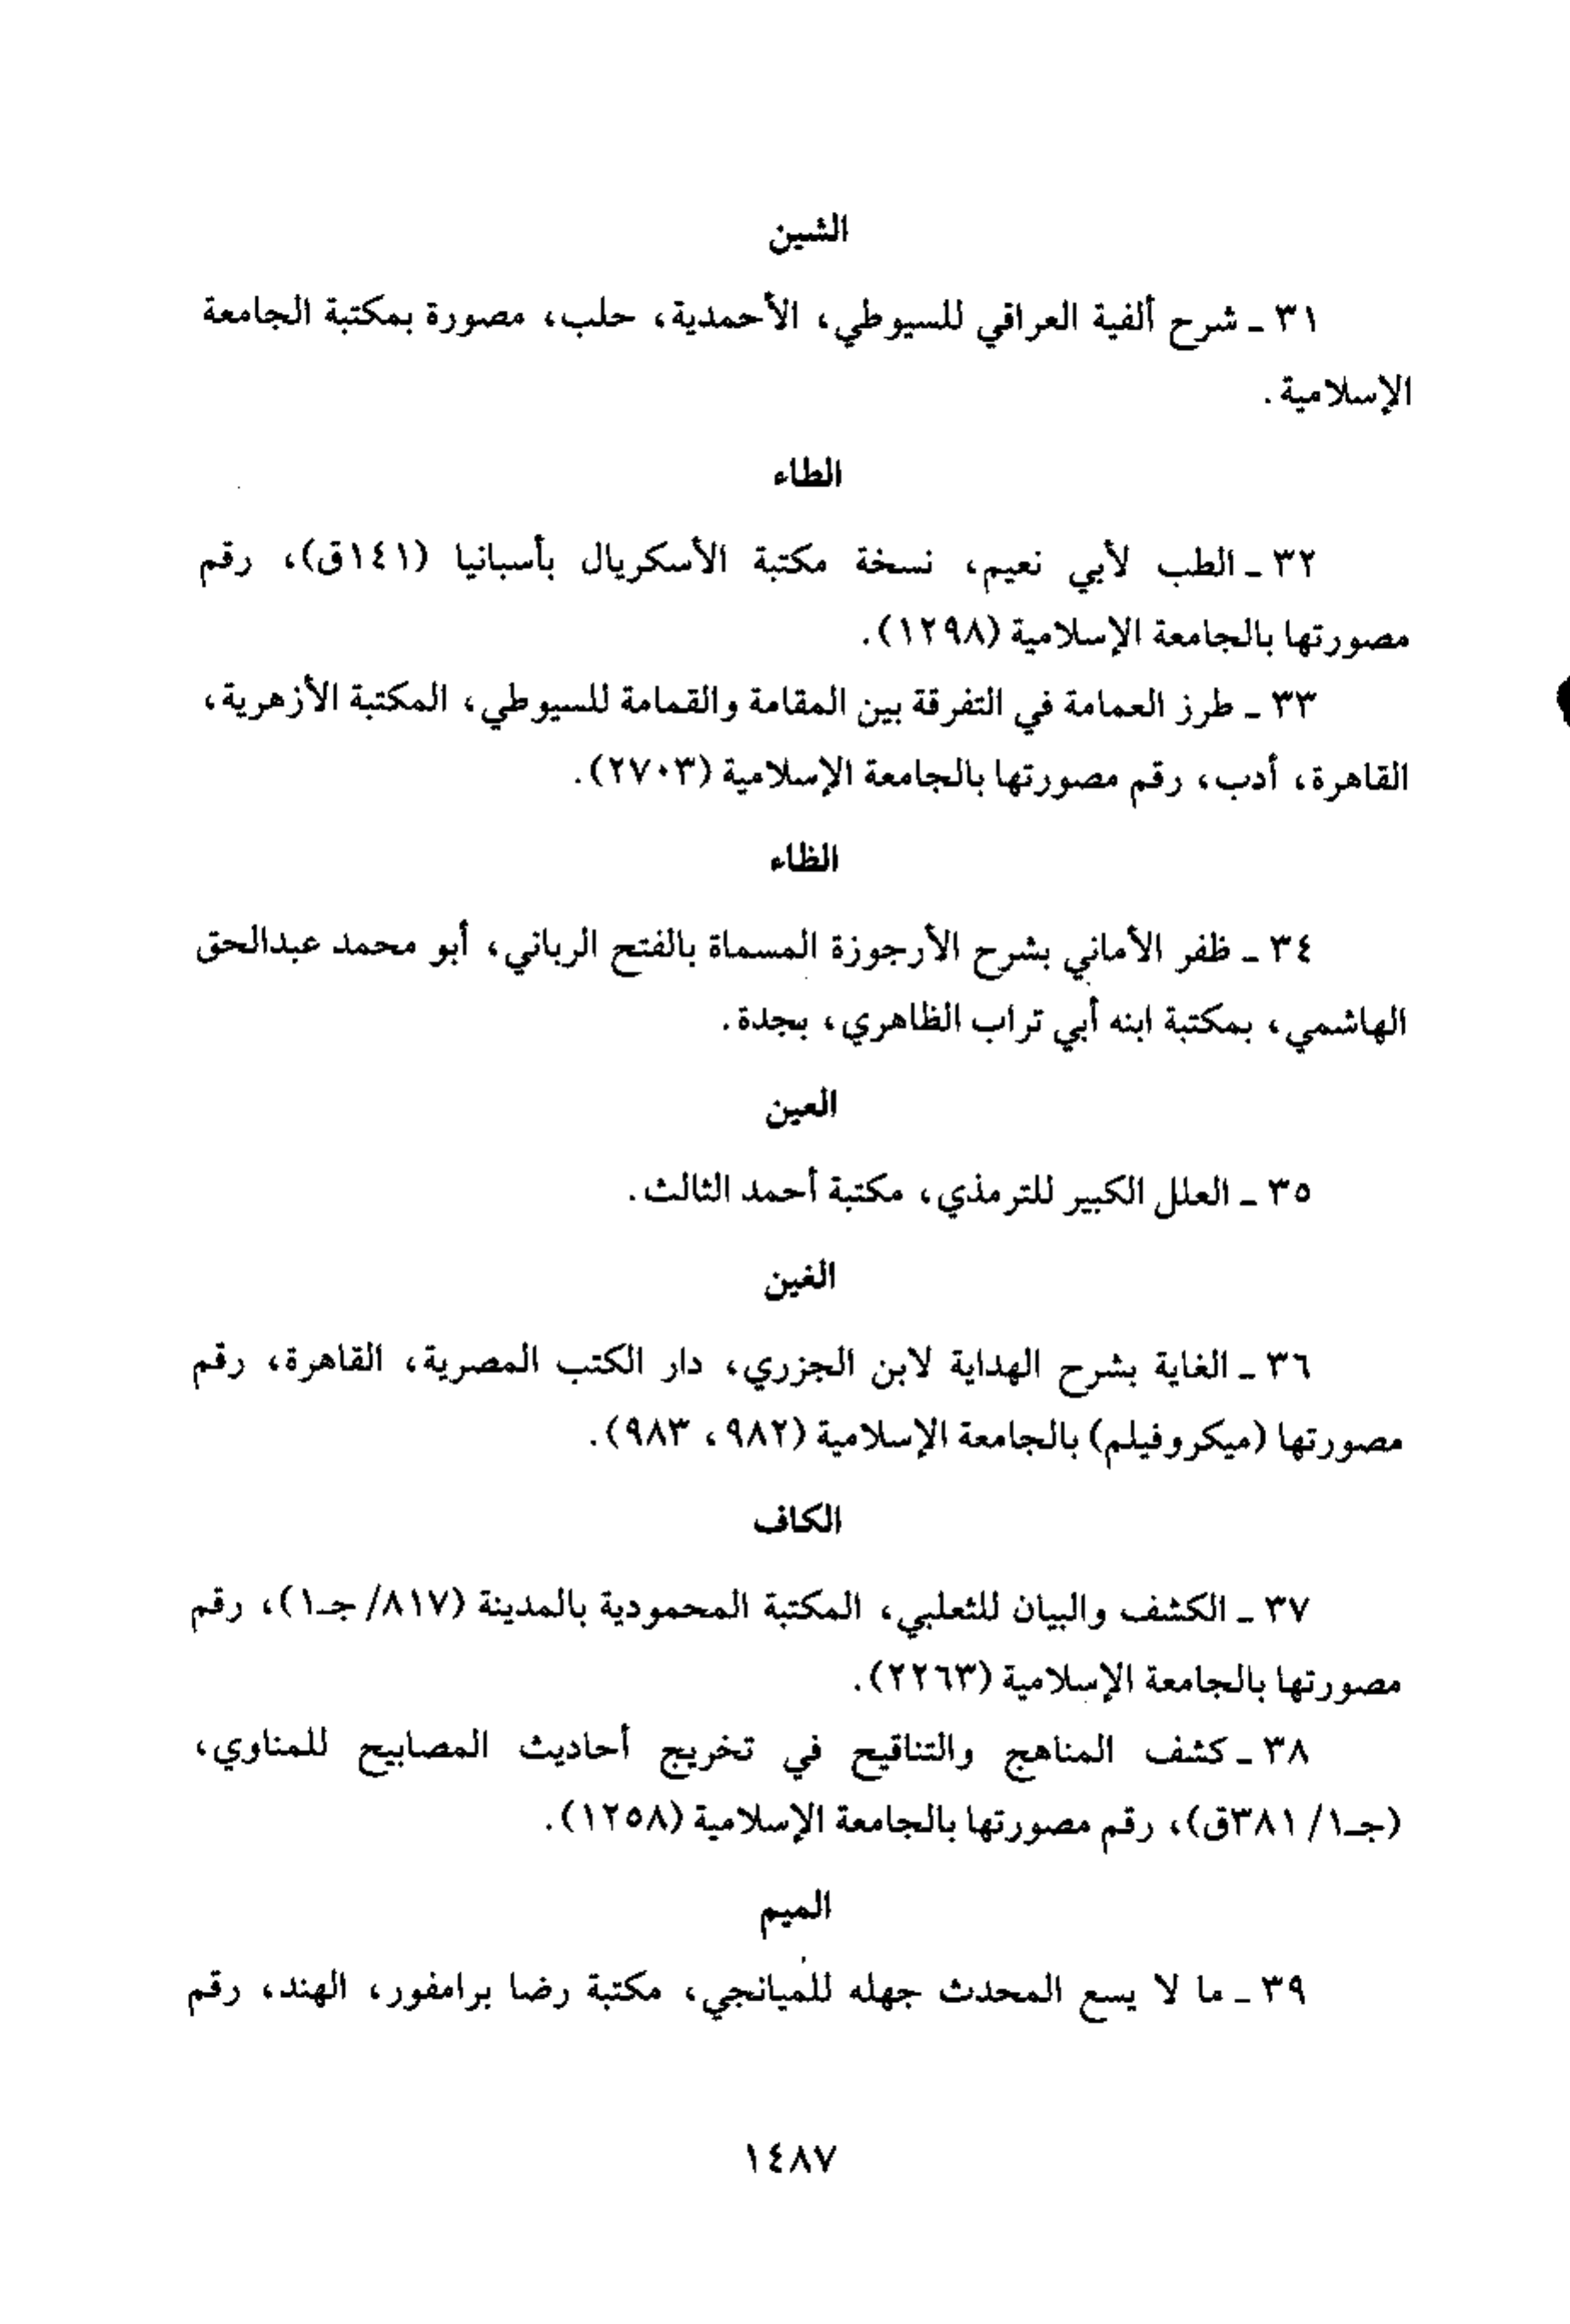 الشين
٣١ ـ شرح ألفية العراقي للسيوطي، الأحمدية، حلب، مصورة بمكتبة الجامعة
الإسلامية.
الطاء
٣٢ ـ الطب لأبي نعيم، نسخة مكتبة الأسكريال بأسبانيا (١٤١ق)، رقم
مصورتها بالجامعة الإسلامية (١٢٩٨).
٣٣ ـ طرز العمامة في التفرقة بين المقامة والقمامة للسيوطي، المكتبة الأزهرية،
القاهرة، أدب، رقم مصورتها بالجامعة الإسلامية (٢٧٠٣).
الظاء
٣٤ ـ ظفر الأماني بشرح الأرجوزة المسماة بالفتح الرباني، أبو محمد عبدالحق
الهاشمي، بمكتبة ابنه أبي تراب الظاهري، بجدة.
العين
٣٥ ـ العلل الكبير للترمذي، مكتبة أحمد الثالث.
الغين
٣٦ ـ الغاية بشرح الهداية لابن الجزري، دار الكتب المصرية، القاهرة، رقم
مصورتها (ميكروفيلم) بالجامعة الإسلامية (٩٨٢، ٩٨٣).
الكاف
٣٧ ـ الكشف والبيان للثعلبي، المكتبة المحمودية بالمدينة (٨١٧/ جـ١)، رقم
مصورتها بالجامعة الإسلامية (٢٢٦٣).
٣٨ ـ كشف المناهج والتناقيح في تخريج أحاديث المصابيح للمناوي،
(جـ١/ ٣٨١ق)، رقم مصورتها بالجامعة الإسلامية (١٢٥٨).
الميم
٣٩ ـ ما لا يسع المحدث جهله للميانجي، مكتبة رضا برامفور، الهند، رقم
١٤٨٧